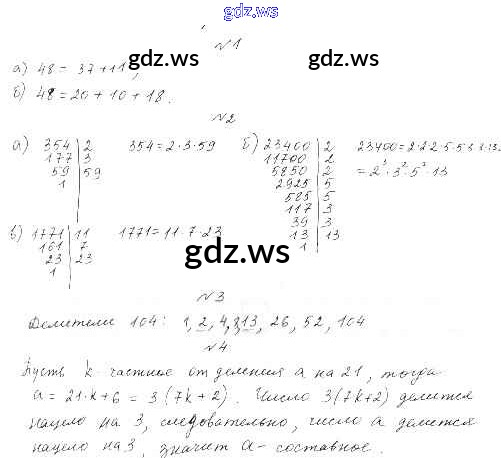 gdz.ws
№1
а) 48 = 37 + 11,
б) 48 = 20 + 10 + 18.
gdz.ws gdz.ws
№2
а) 354 | 2 354 = 2·3·59
177 | 3
59 | 59
1
б) 23400 | 2 23400 = 2·2·2·5·5·3·3·13
11700 | 2 = 2³·3²·5²·13
5850 | 2
2925 | 5
585 | 5
117 | 3
39 | 3
13 | 13
1
в) 1771 | 11 1771 = 11·7·23
161 | 7
23 | 23
1
gdz.ws
№3
Делители 104: 1, 2, 4, 8, 13, 26, 52, 104
№4
Пусть k - частное от деления a на 21, тогда
a = 21·k + 6 = 3(7k + 2). Число 3(7k+2) делится
нацело на 3, следовательно, число a делится
нацело на 3, значит a - составное.